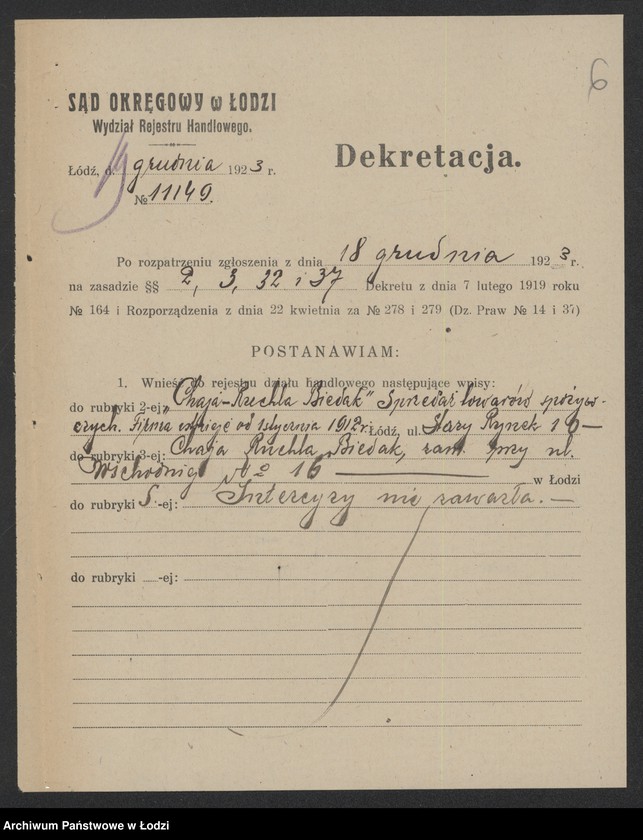 6
SĄD OKRĘGOWY w ŁODZI
Wydział Rejestru Handlowego.
Dekretacja.
Łódź, d. 19 grudnia 1923 r.
№ 11149.
Po rozpatrzeniu zgłoszenia z dnia 18 grudnia 1923 r.
na zasadzie §§ 2, 3, 32 i 37 Dekretu z dnia 7 lutego 1919 roku
№ 164 i Rozporządzenia z dnia 22 kwietnia za № 278 i 279 (Dz. Praw № 14 i 37)
POSTANAWIAM:
1. Wnieść do rejestru działu handlowego następujące wpisy:
do rubryki 2-ej: „Chaja-Ruchla Biedak" Sprzedaż towarów spożyw-
czych. Firma istnieje od 1 stycznia 1912 r. Łódź, ul. Stary Rynek 16 —
do rubryki 3-ej: Chaja Ruchla Biedak, zam. przy ul.
Wschodniej № 16 — w Łodzi
do rubryki 5-ej: Intercyzy nie zawarła. —
do rubryki -ej:
Archiwum Państwowe w Łodzi